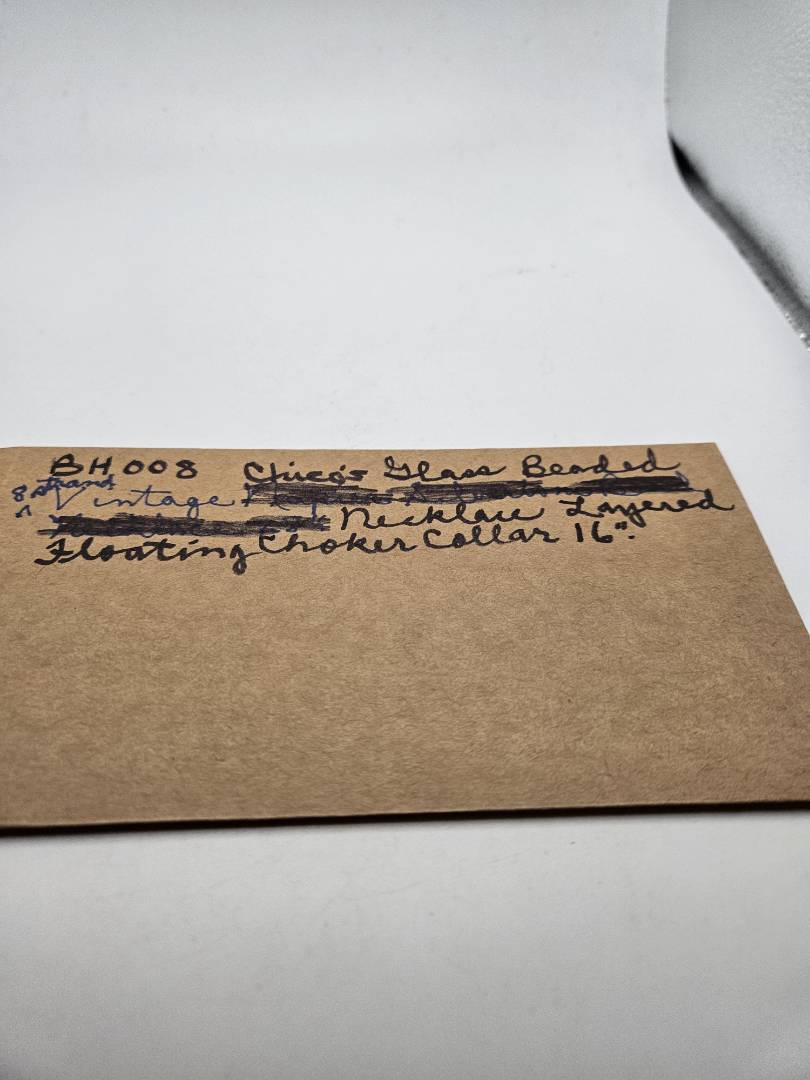 BH 008 Chico's Glass Beaded
8 strand
Vintage
Necklace Layered
Floating Choker Collar 16".